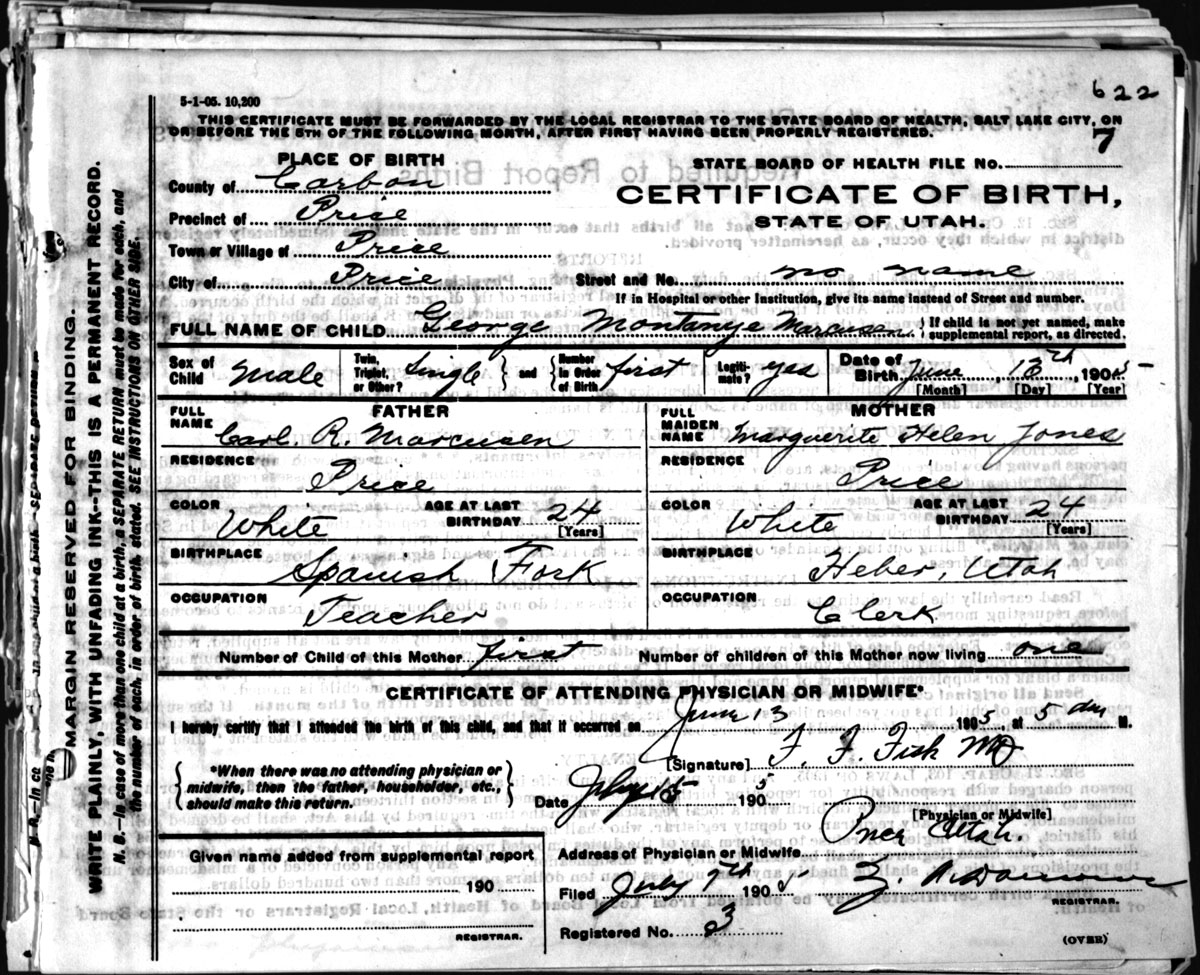 622
5-1-05. 10,200
THIS CERTIFICATE MUST BE FORWARDED BY THE LOCAL REGISTRAR TO THE STATE BOARD OF HEALTH, SALT LAKE CITY, ON
OR BEFORE THE 5TH OF THE FOLLOWING MONTH, AFTER FIRST HAVING BEEN PROPERLY REGISTERED.
7
PLACE OF BIRTH
STATE BOARD OF HEALTH FILE No.
County of Carbon
CERTIFICATE OF BIRTH,
Precinct of Price
STATE OF UTAH.
Town or Village of Price
City of Price Street and No. no name
If in Hospital or other Institution, give its name instead of Street and number.
FULL NAME OF CHILD George Montanye Marcusen { If child is not yet named, make
supplemental report, as directed.
Sex of Child Male Twin, Triplet, or Other? Single } and { Number in Order of Birth first Legitimate? yes Date of Birth June 13th, 1905
[Month] [Day] [Year]
FATHER MOTHER
FULL NAME Carl. R. Marcusen FULL MAIDEN NAME Marguerite Helen Jones
RESIDENCE Price RESIDENCE Price
COLOR White AGE AT LAST BIRTHDAY 24 [Years] COLOR White AGE AT LAST BIRTHDAY 24 [Years]
BIRTHPLACE Spanish Fork BIRTHPLACE Heber, Utah
OCCUPATION Teacher OCCUPATION Clerk
Number of Child of this Mother first Number of children of this Mother now living one
CERTIFICATE OF ATTENDING PHYSICIAN OR MIDWIFE*
I hereby certify that I attended the birth of this child, and that it occurred on June 13 1905, at 5 M.
{ *When there was no attending physician or
midwife, then the father, householder, etc.,
should make this return. }
[Signature] F. F. Fisk MD
Date July 1905
[Physician or Midwife]
Given name added from supplemental report
Address of Physician or Midwife Price Utah.
190
Filed July 7th 1905
REGISTRAR.
Registered No. 3
REGISTRAR.
(OVER)
MARGIN RESERVED FOR BINDING.
WRITE PLAINLY, WITH UNFADING INK--THIS IS A PERMANENT RECORD.
N. B.--In case of more than one child at a birth, a SEPARATE RETURN must be made for each, and
the number of each, in order of birth, stated. SEE INSTRUCTIONS ON OTHER SIDE.